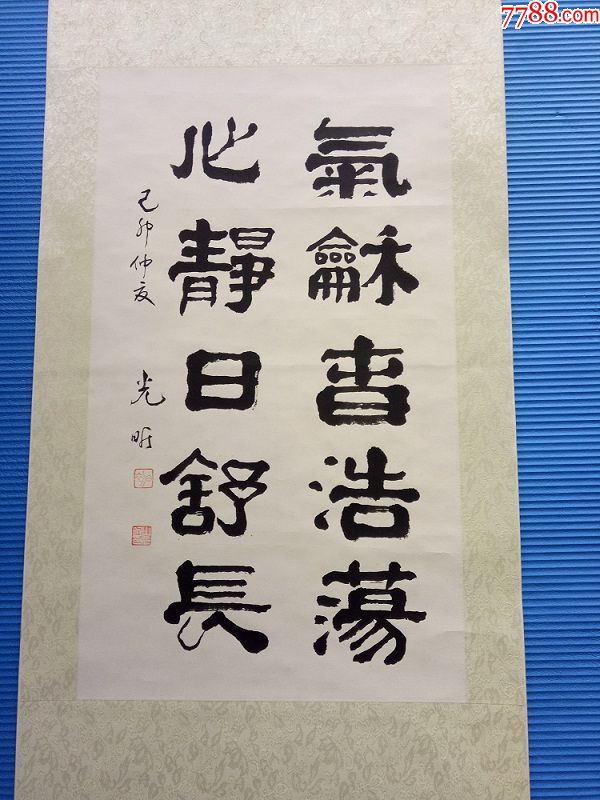 7788.com
氣龢旾浩蕩
心靜日舒長
己卯仲夏
光